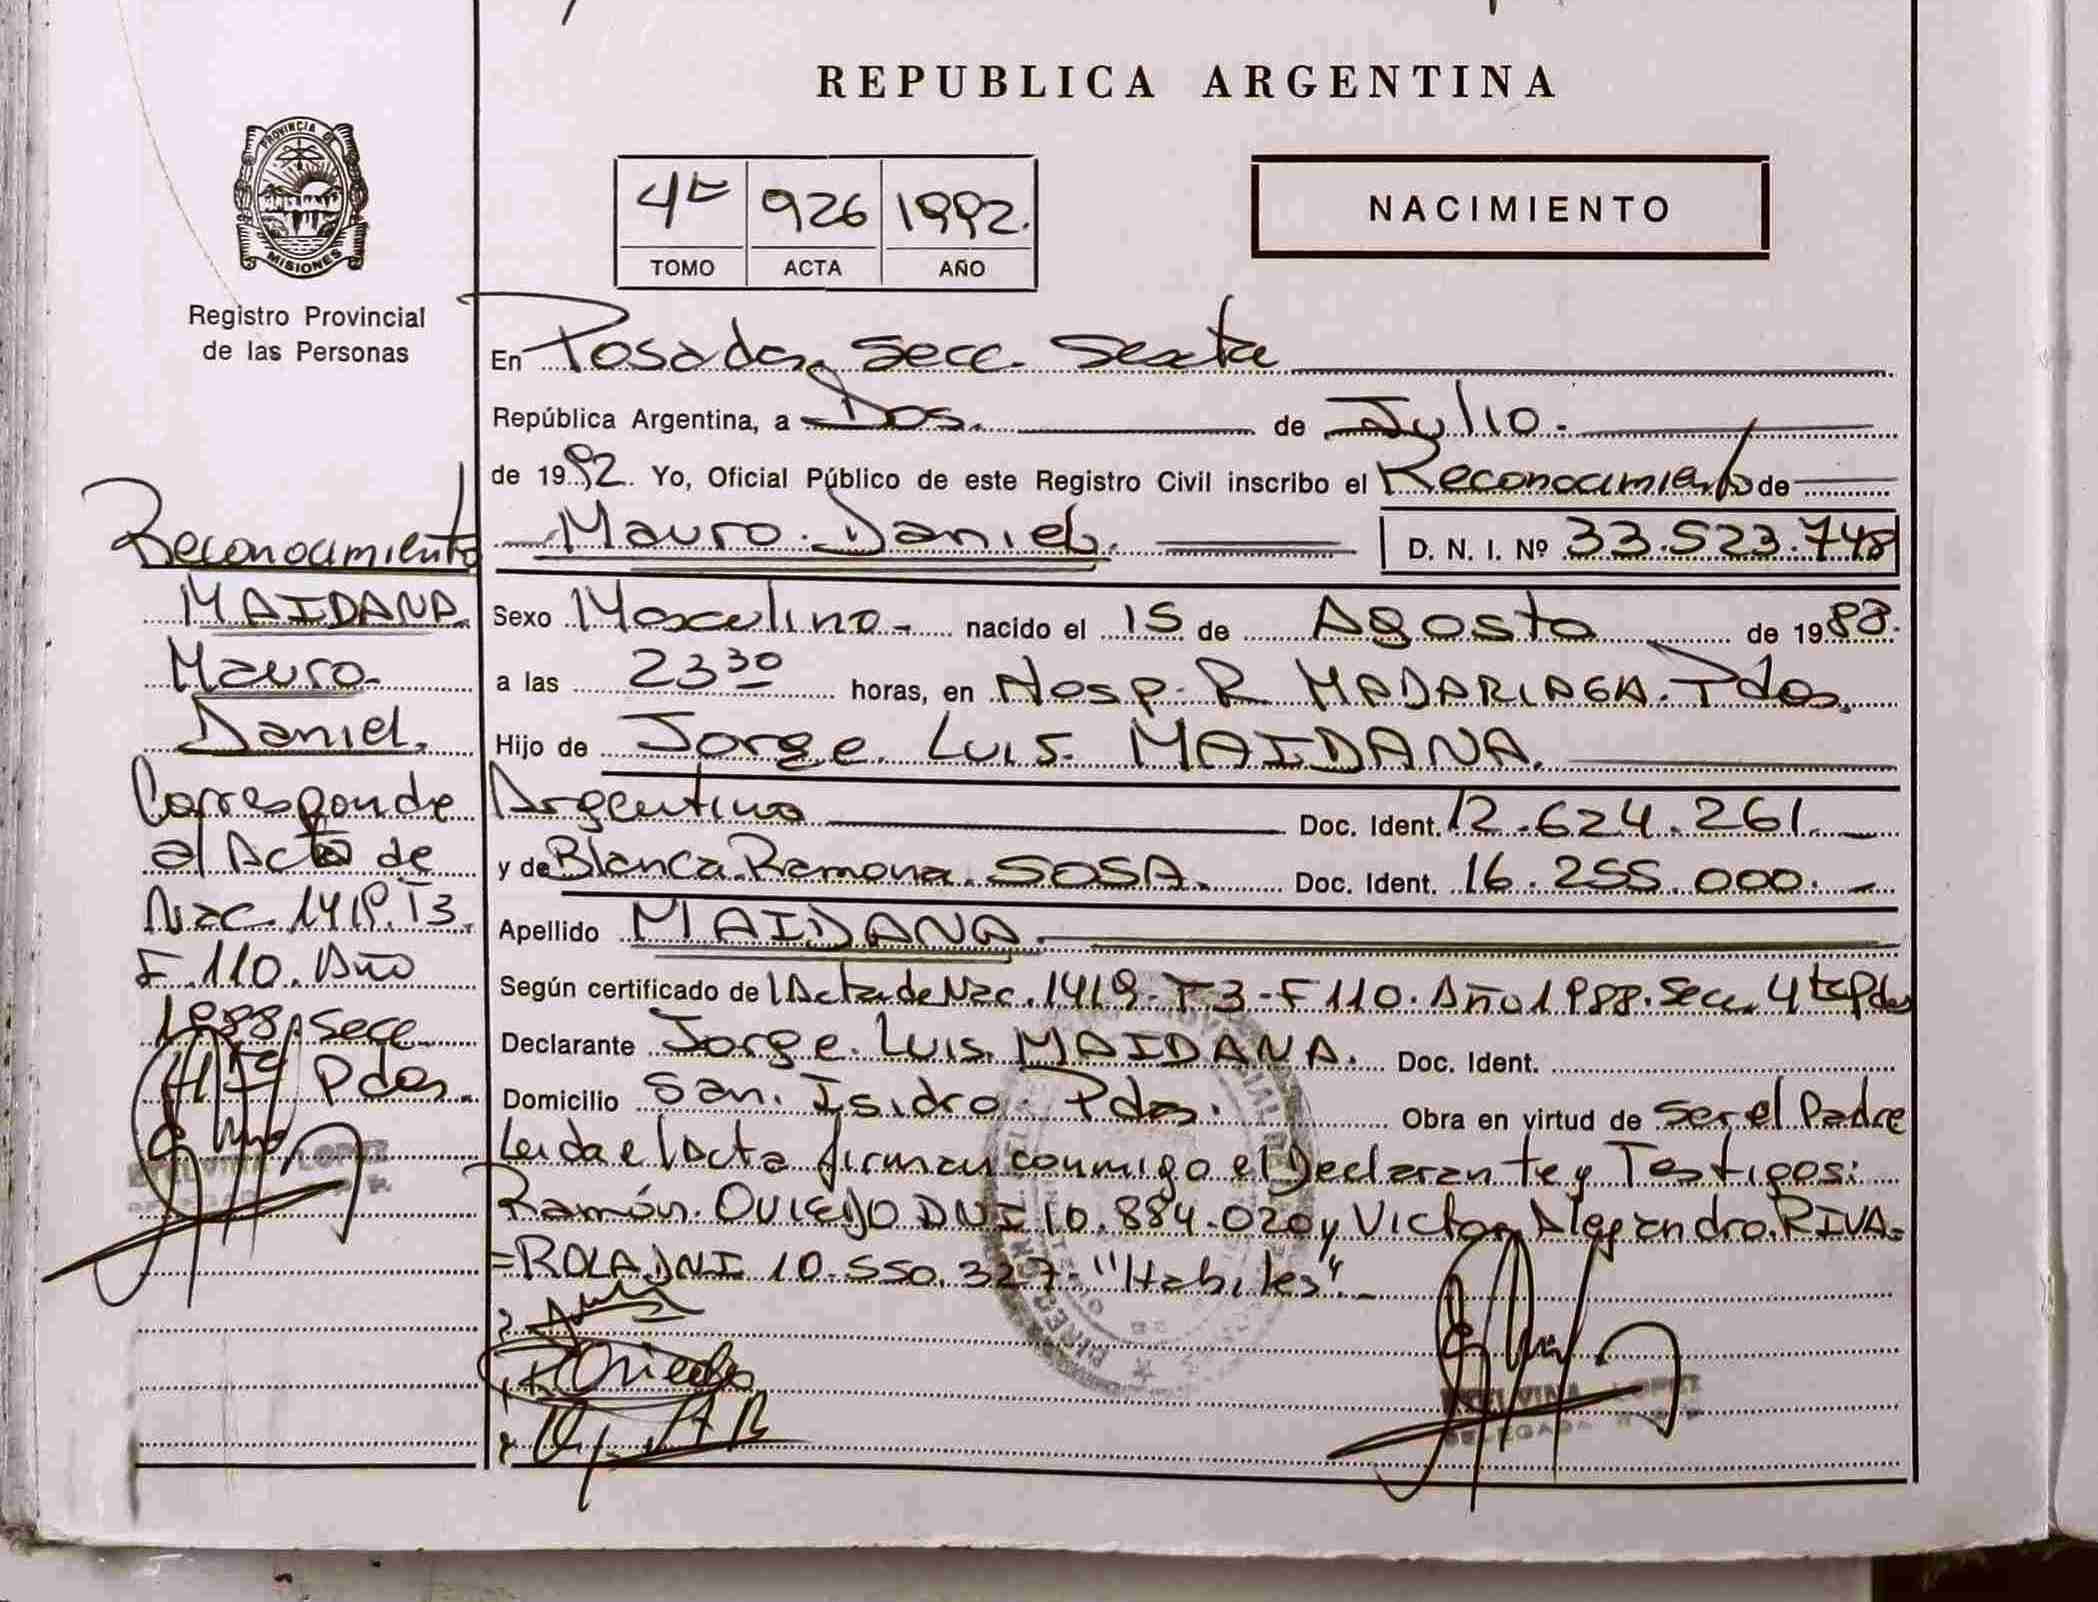 REPUBLICA ARGENTINA
PROVINCIA DE
MISIONES
Registro Provincial
de las Personas
4to 926 1992.
TOMO ACTA AÑO
NACIMIENTO
En Posadas, Secc. Sexta
República Argentina, a Dos. de Julio.
de 1992. Yo, Oficial Público de este Registro Civil inscribo el Reconocimiento de
Mauro Daniel. D. N. I. Nº 33.523.748
Sexo Masculino. nacido el 15 de Agosto de 1988.
a las 23 30 horas, en Hosp. R. MADARIAGA. Pdas.
Hijo de Jorge Luis MAIDANA.
Argentino Doc. Ident. 12.624.261.
y de Blanca Ramona SOSA. Doc. Ident. 16.255.000.
Apellido MAIDANA.
Según certificado de l Acta de Nac. 1419-T.3-F 110. Año 1988. Secc. 4ta Pdas
Declarante Jorge Luis MAIDANA. Doc. Ident.
Domicilio San Isidro Pdas. Obra en virtud de Ser el Padre
Leida el Acta firman conmigo el Declarante y Testigos:
Ramón OVIEDO DNI 10.884.020 y Victor Alejandro RIVA=
=ROLA DNI 10.550.327 "Habiles"
Oviedo
Reconocimiento
MAIDANA
Mauro
Daniel.
Corresponde
al Acta de
Nac. 1419. T3.
F. 110. Año
1988. Secc
4ta Pdas.
LOPEZ
LOPEZ
DELEGADA